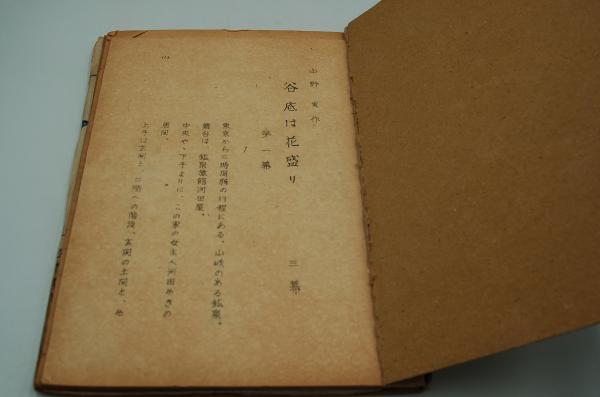 山野 實作
谷底は花盛り 三幕
第一幕
東京から三時間餘の行程にある、山峡のある鉱泉。
舞台は、鉱泉旅館河田屋。
中央や、下手よりに、この家の女主人河田あきの
居間。
上手は玄関と、二階への階段、玄関の土間と、あ